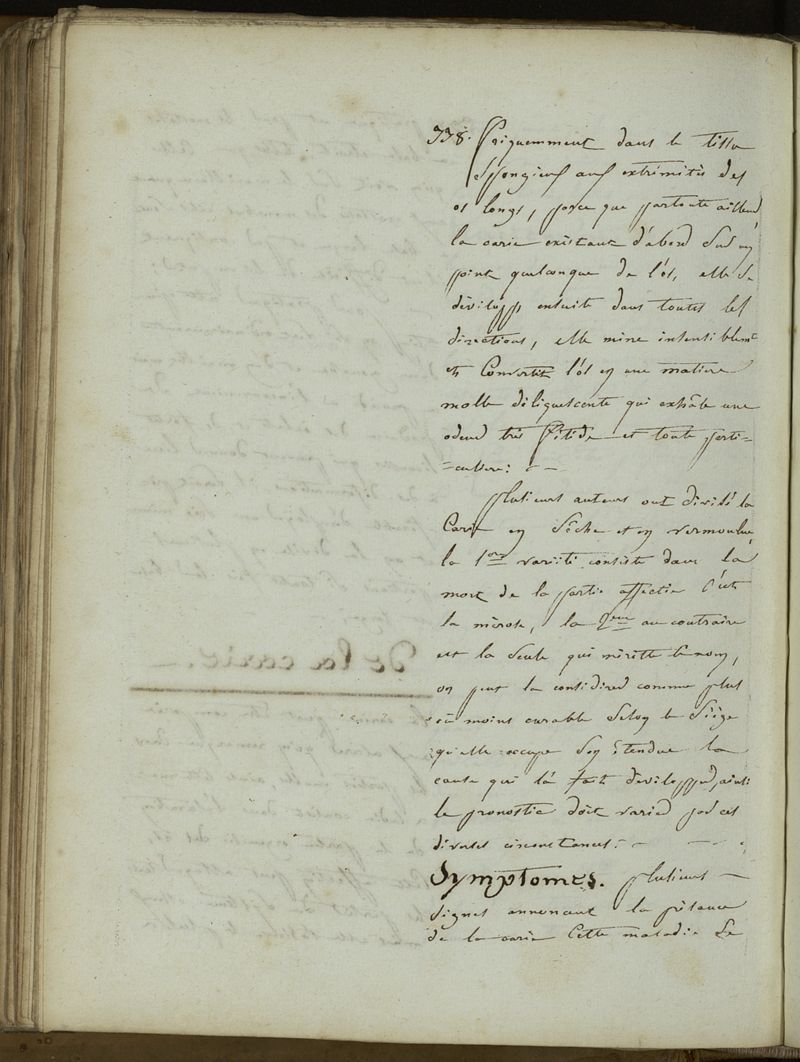 338. Friquemment dans le tissu
spongieux aux extrémités des
os longs, parce que partoute ailleurs
la carie existant d'abord sur un
point quelconque de l'os, elle se
développs ensuite dans toutes les
directions, elle mine insensiblemt
et Convertit l'os en une matiere
molle déliquescente qui exhâle une
odeur très fétide et toute parti=
=culiere: - -
plusieurs auteurs ont divisé la
Carie en sêche et en vermoulue,
la 1ere varieté consiste dans la
mort de la partie affectée c'est
la nécrose, la 2eme au contraire
est la seule qui méritte le nom,
on peut la considirer comme plus
où moins curable selon le siège
qu'elle occupe son étendue la
cause qui l'a fait développer, ainsi
le pronostic doit varier par ces
diverses circonstances: - - -
Symptomes. plusieurs -
signes annoncent la présence
de la carie Cette maladie se
De la carie. -